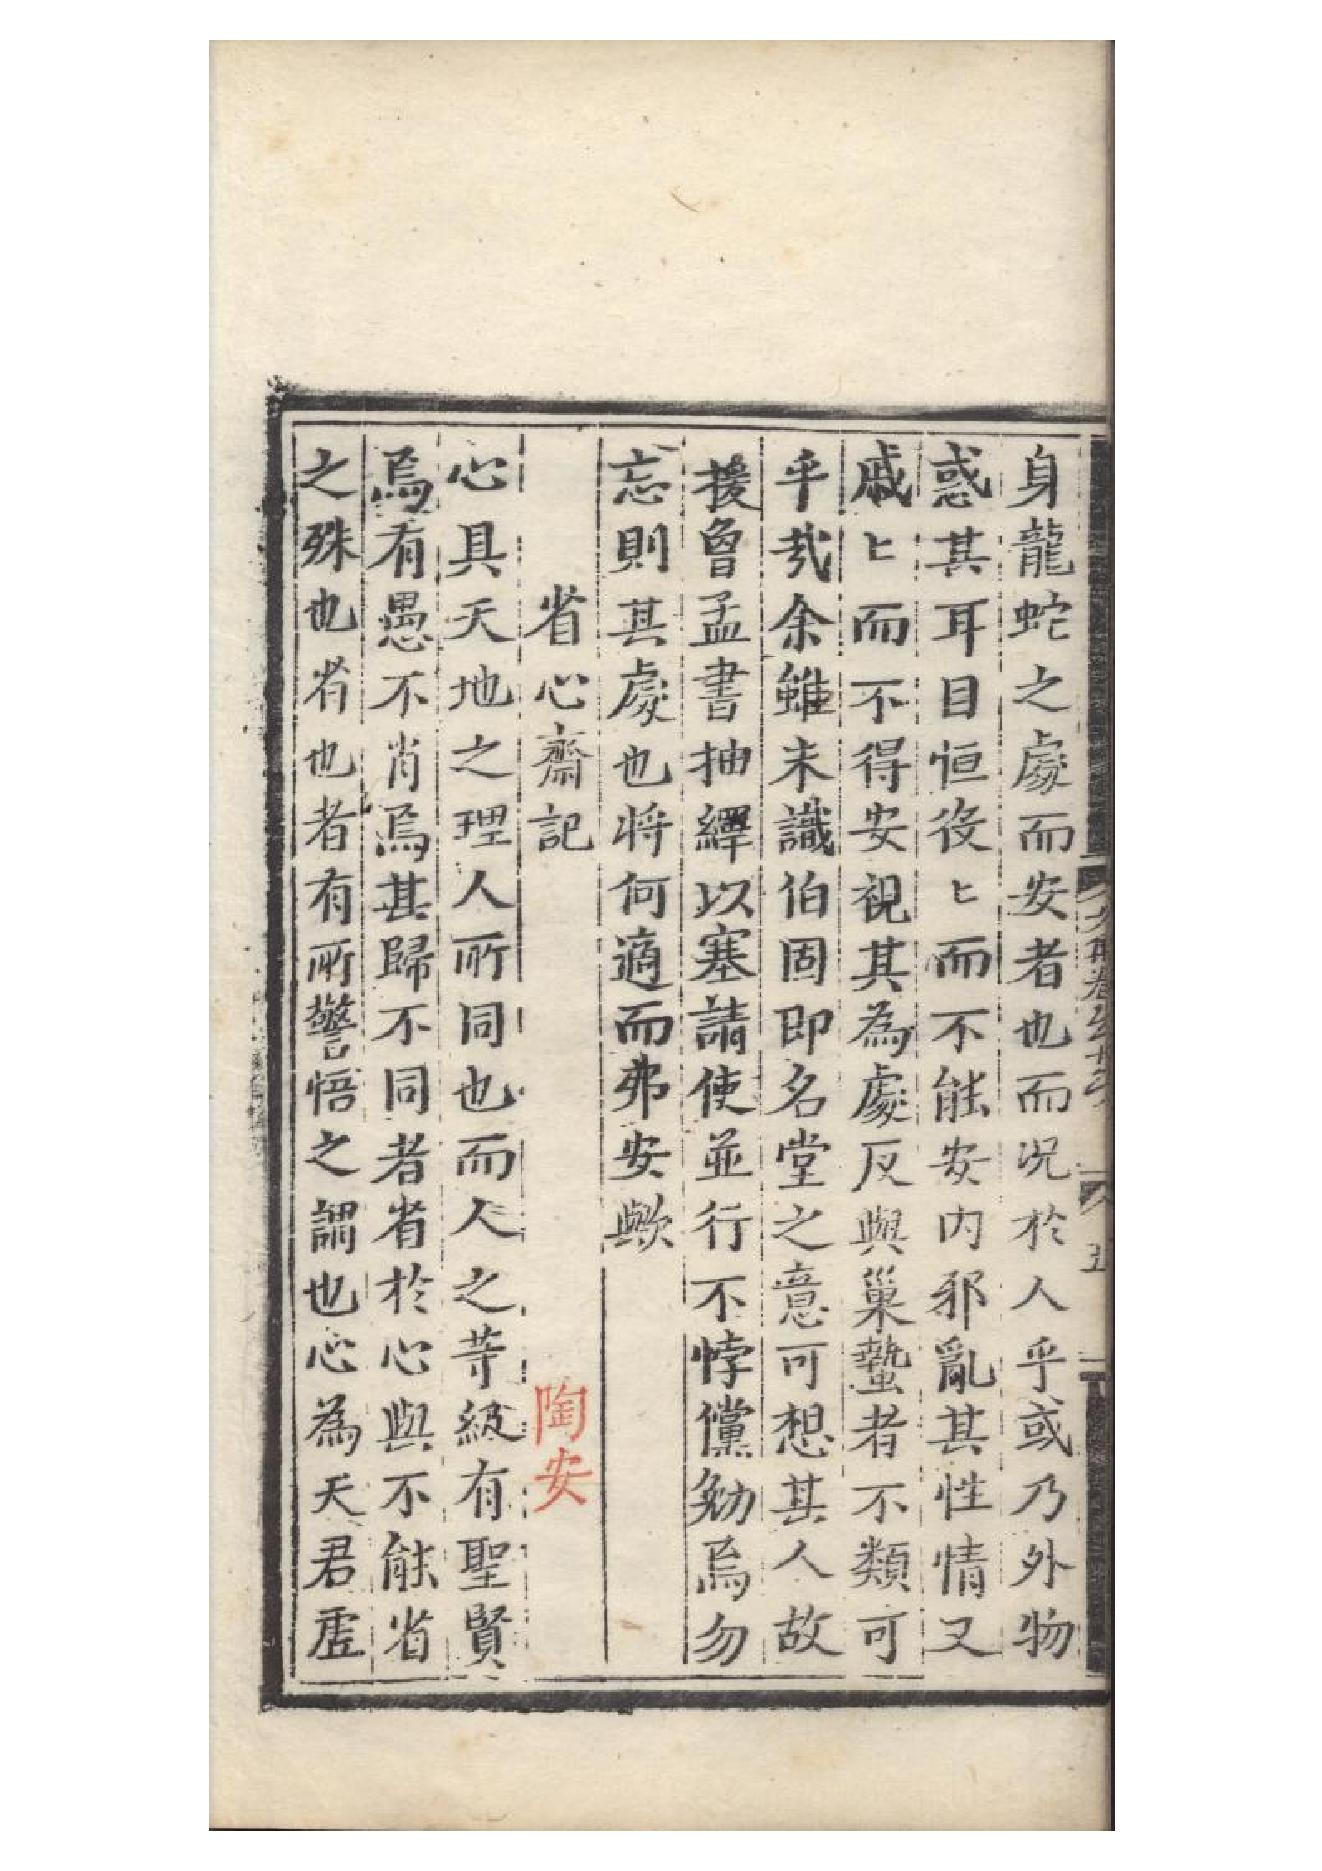 身龍蛇之處而安者也而況於人乎或乃外物
惑其耳目恒役〻而不能安內邪亂其性情又
戚〻而不得安視其為處反與巢蟄者不類可
乎哉余雖未識伯固即名堂之意可想其人故
援魯孟書抽繹以塞請使並行不悖儻勉焉勿
忘則其處也將何適而弗安歟
省心齋記
陶安
心具天地之理人所同也而人之等級有聖賢
焉有愚不肖焉其歸不同者省於心與不能省
之殊也省也者有所警悟之謂也心為天君虛